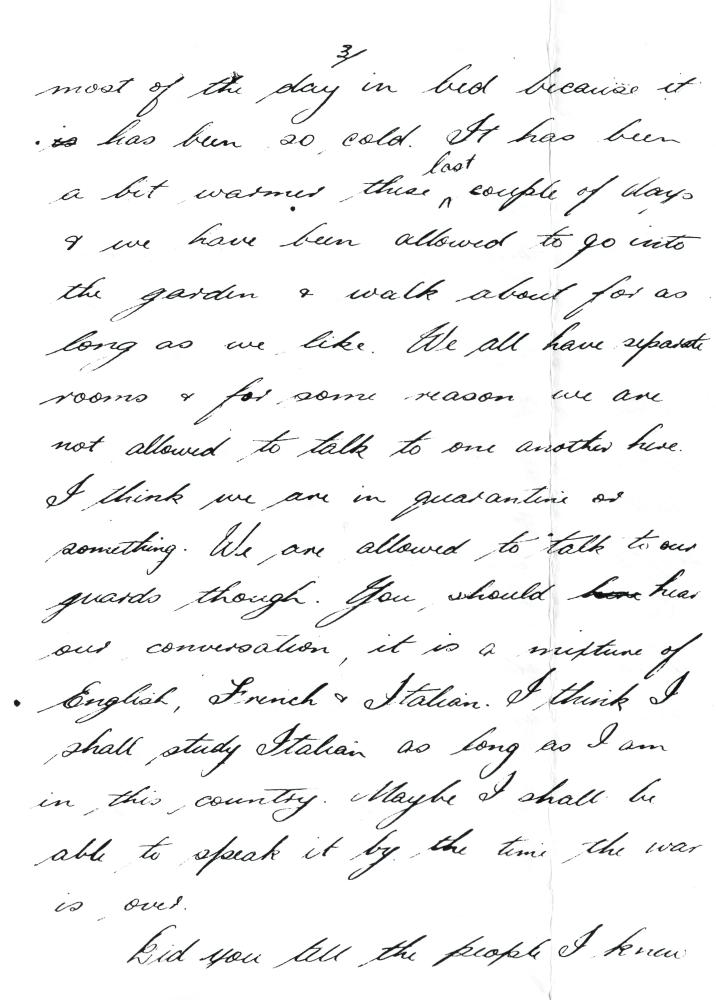 3/
most of the day in bed because it
is has been so cold. It has been
last
a bit warmer these ^ couple of days
& we have been allowed to go into
the garden & walk about for as
long as we like. We all have separate
rooms & for some reason we are
not allowed to talk to one another here.
I think we are in quarantine or
something. We are allowed to talk to our
guards though. You should hear
our conversation, it is a mixture of
English, French & Italian. I think I
shall study Italian as long as I am
in this country. Maybe I shall be
able to speak it by the time the war
is over.
Did you tell the people I knew